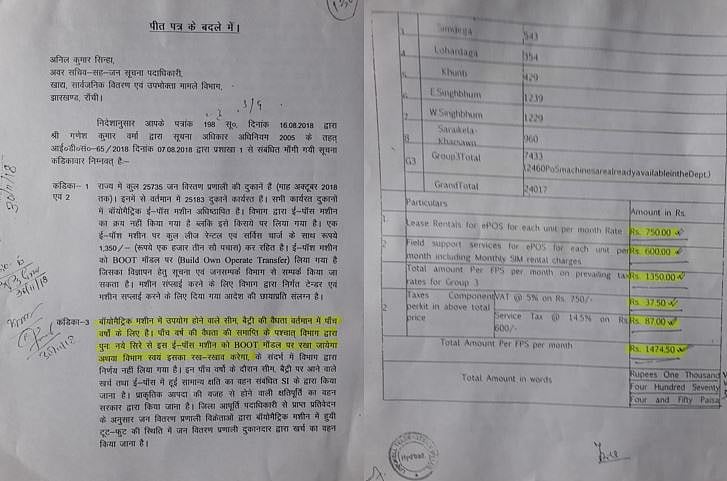 पीत पत्र के बदले में।
अनिल कुमार सिन्हा,
अवर सचिव-सह-जन सूचना पदाधिकारी,
खाद्य, सार्वजनिक वितरण एवं उपभोक्ता मामले विभाग,
झारखण्ड, राँची।
निदेशानुसार आपके पत्रांक 198 सू०, दिनांक 16.08.2018 द्वारा
श्री गणेश कुमार वर्मा द्वारा सूचना अधिकार अधिनियम 2005 के तहत
आई०डी०सं०-65/2018 दिनांक 07.08.2018 द्वारा प्रशाखा 1 से संबंधित माँगी गयी सूचना
कंडिकावार निम्नवत् है:-
कंडिका- 1 राज्य में कुल 25735 जन वितरण प्रणाली की दुकानें है (माह अक्टूबर 2018
एवं 2 तक)। इनमें से वर्तमान में 25183 दुकानें कार्यरत है। सभी कार्यरत दुकानों
में बॉयोमैट्रिक ई-पॉस मशीन अधिष्ठापित है। विभाग द्वारा ई-पॉस मशीन
का क्रय नहीं किया गया है ब्लकि इसे किराये पर लिया गया है। एक
ई-पॉस मशीन पर कुल लीज रेन्टल एवं सर्विस चार्ज के साथ रूपये
1,350/- (रूपये एक हजार तीन सौ पचास) कर रहित है। ई-पॉश मशीन
को BOOT मॉडल पर (Build Own Operate Transfer) लिया गया है
जिसका विज्ञापन हेतु सूचना एवं जनसम्पर्क विभाग से सम्पर्क किया जा
सकता है। मशीन संप्लाई करने के लिए विभाग द्वारा निर्गत टेन्डर एवं
मशीन सप्लाई करने के लिए दिया गया आदेश की छायाप्रति संलग्न है।
कंडिका-3 बॉयोमैट्रिक मशीन में उपयोग होने वाले सीम, बैट्री की वैधता वर्तमान में पाँच
वर्षो के लिए है। पाँच वर्ष की वैधता की समाप्ति के पश्चात् विभाग द्वारा
पुनः नये सिरे से इस ई-पॉस मशीन को BOOT मौडल पर रखा जायेगा
अथवा विभाग स्वयं इसका रख-रखाव करेगा, के संदर्भ में विभाग द्वारा
निर्णय नहीं लिया गया है। इन पाँच वर्षो के दौरान सीम, बैट्री पर आने वाले
खर्च तथा ई-पॉस में हुई सामान्य क्षति का वहन संबंधित SI के द्वारा किया
जाना है। प्राकृतिक आपदा की वजह से होने वाली क्षतिपूर्ति का वहन
सरकार द्वारा किया जाना है। जिला आपूर्ति पदाधिकारी से प्राप्त प्रतिवेदन
के अनुसार जन वितरण प्रणाली विक्रेताओं द्वारा बॉयोमैट्रिक मशीन में हुयी
टूट-फुट की स्थिति में जन वितरण प्रणाली दुकानदार द्वारा खर्च का वहन
किया जाना है।
Simdega 543
4 Lohardaga 354
5 Khunti 429
6 E Singhbhum 1239
7 W Singhbhum 1229
8 Saraikela-Kharsawn 960
G3 Group3Total 7433
(2460PoSmachinesarealreadyavailableintheDept.)
GrandTotal 24017
Particulars Amount in Rs.
1 Lease Rentals for ePOS for each unit per month Rate Rs. 750.00
2 Field support services for ePOS for each unit per month including Monthly SIM rental charges Rs. 600.00
Total amount Per FPS per month on prevailing tax rates for Group 3 Rs. 1350.00
2 Taxes Component perkit in above total price VAT @ 5% on Rs. 750/- Rs. 37.50
Service Tax @ 14.5% on Rs. 600/- Rs. 87.00
Total Amount Per FPS per month Rs. 1474.50
Total Amount in words Rupees One Thousand
Four Hundred Seventy
Four and Fifty Paisa